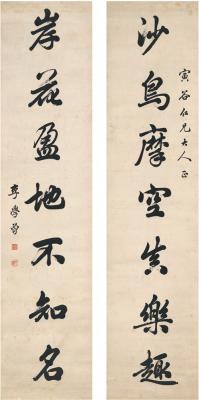 寅谷仁兄大人正
沙鳥摩空真樂趣
岸花盈地不知名
李學曾